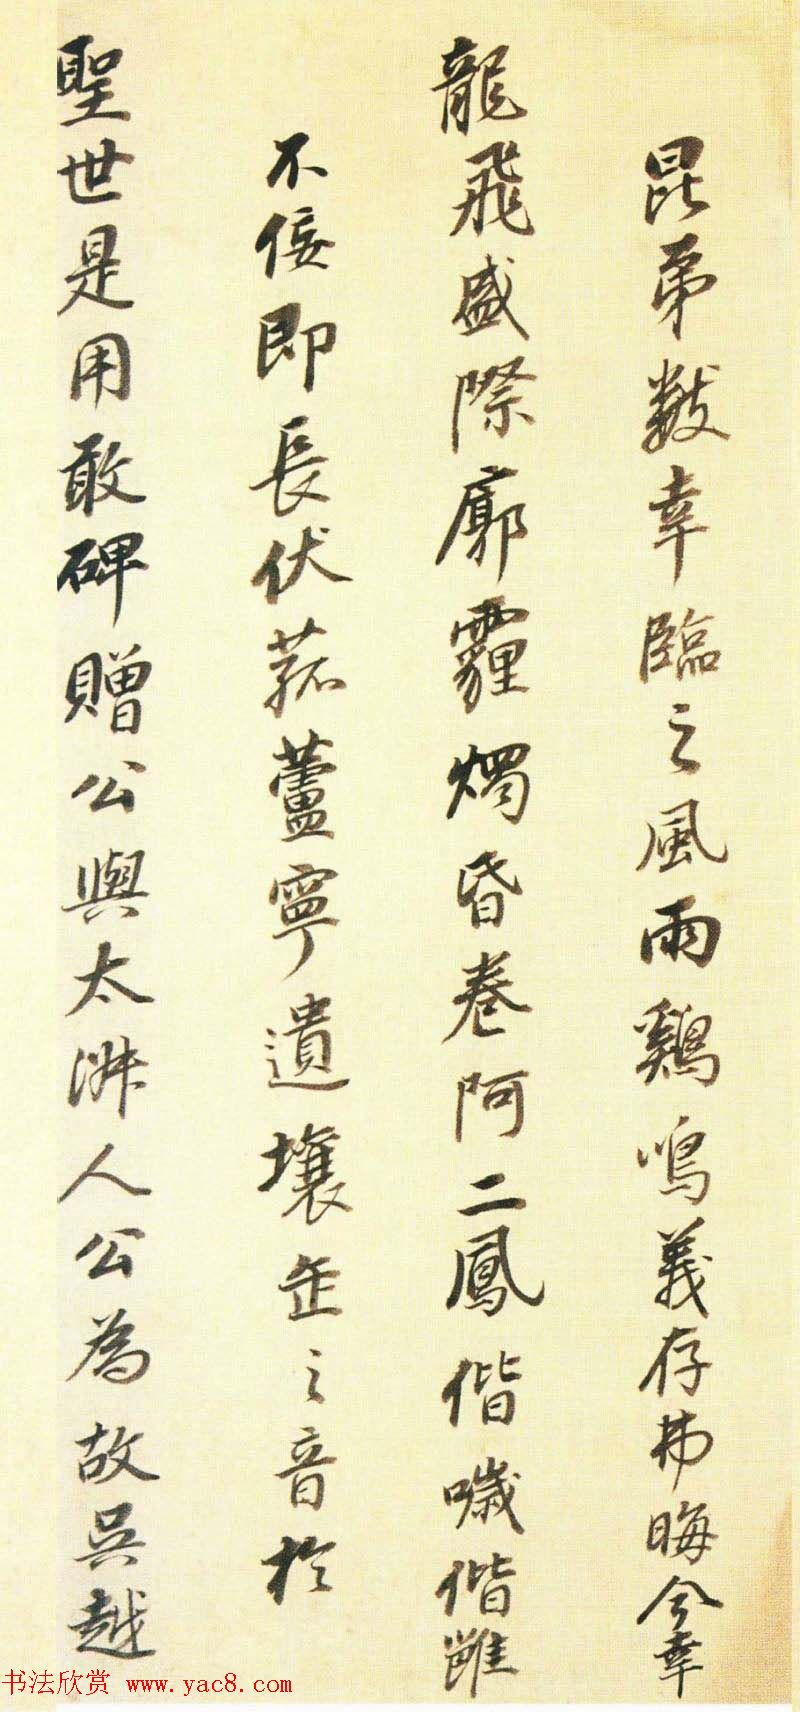 昆弟數幸臨之風雨鷄鳴義存弗晦今幸
龍飛盛際廓霾燭昏卷阿二鳳偕噦偕雝
不佞即長伏菰蘆寧遺壤缶之音於
聖世是用敢碑贈公與太淑人公為故吳越
书法欣赏 www.yac8.com